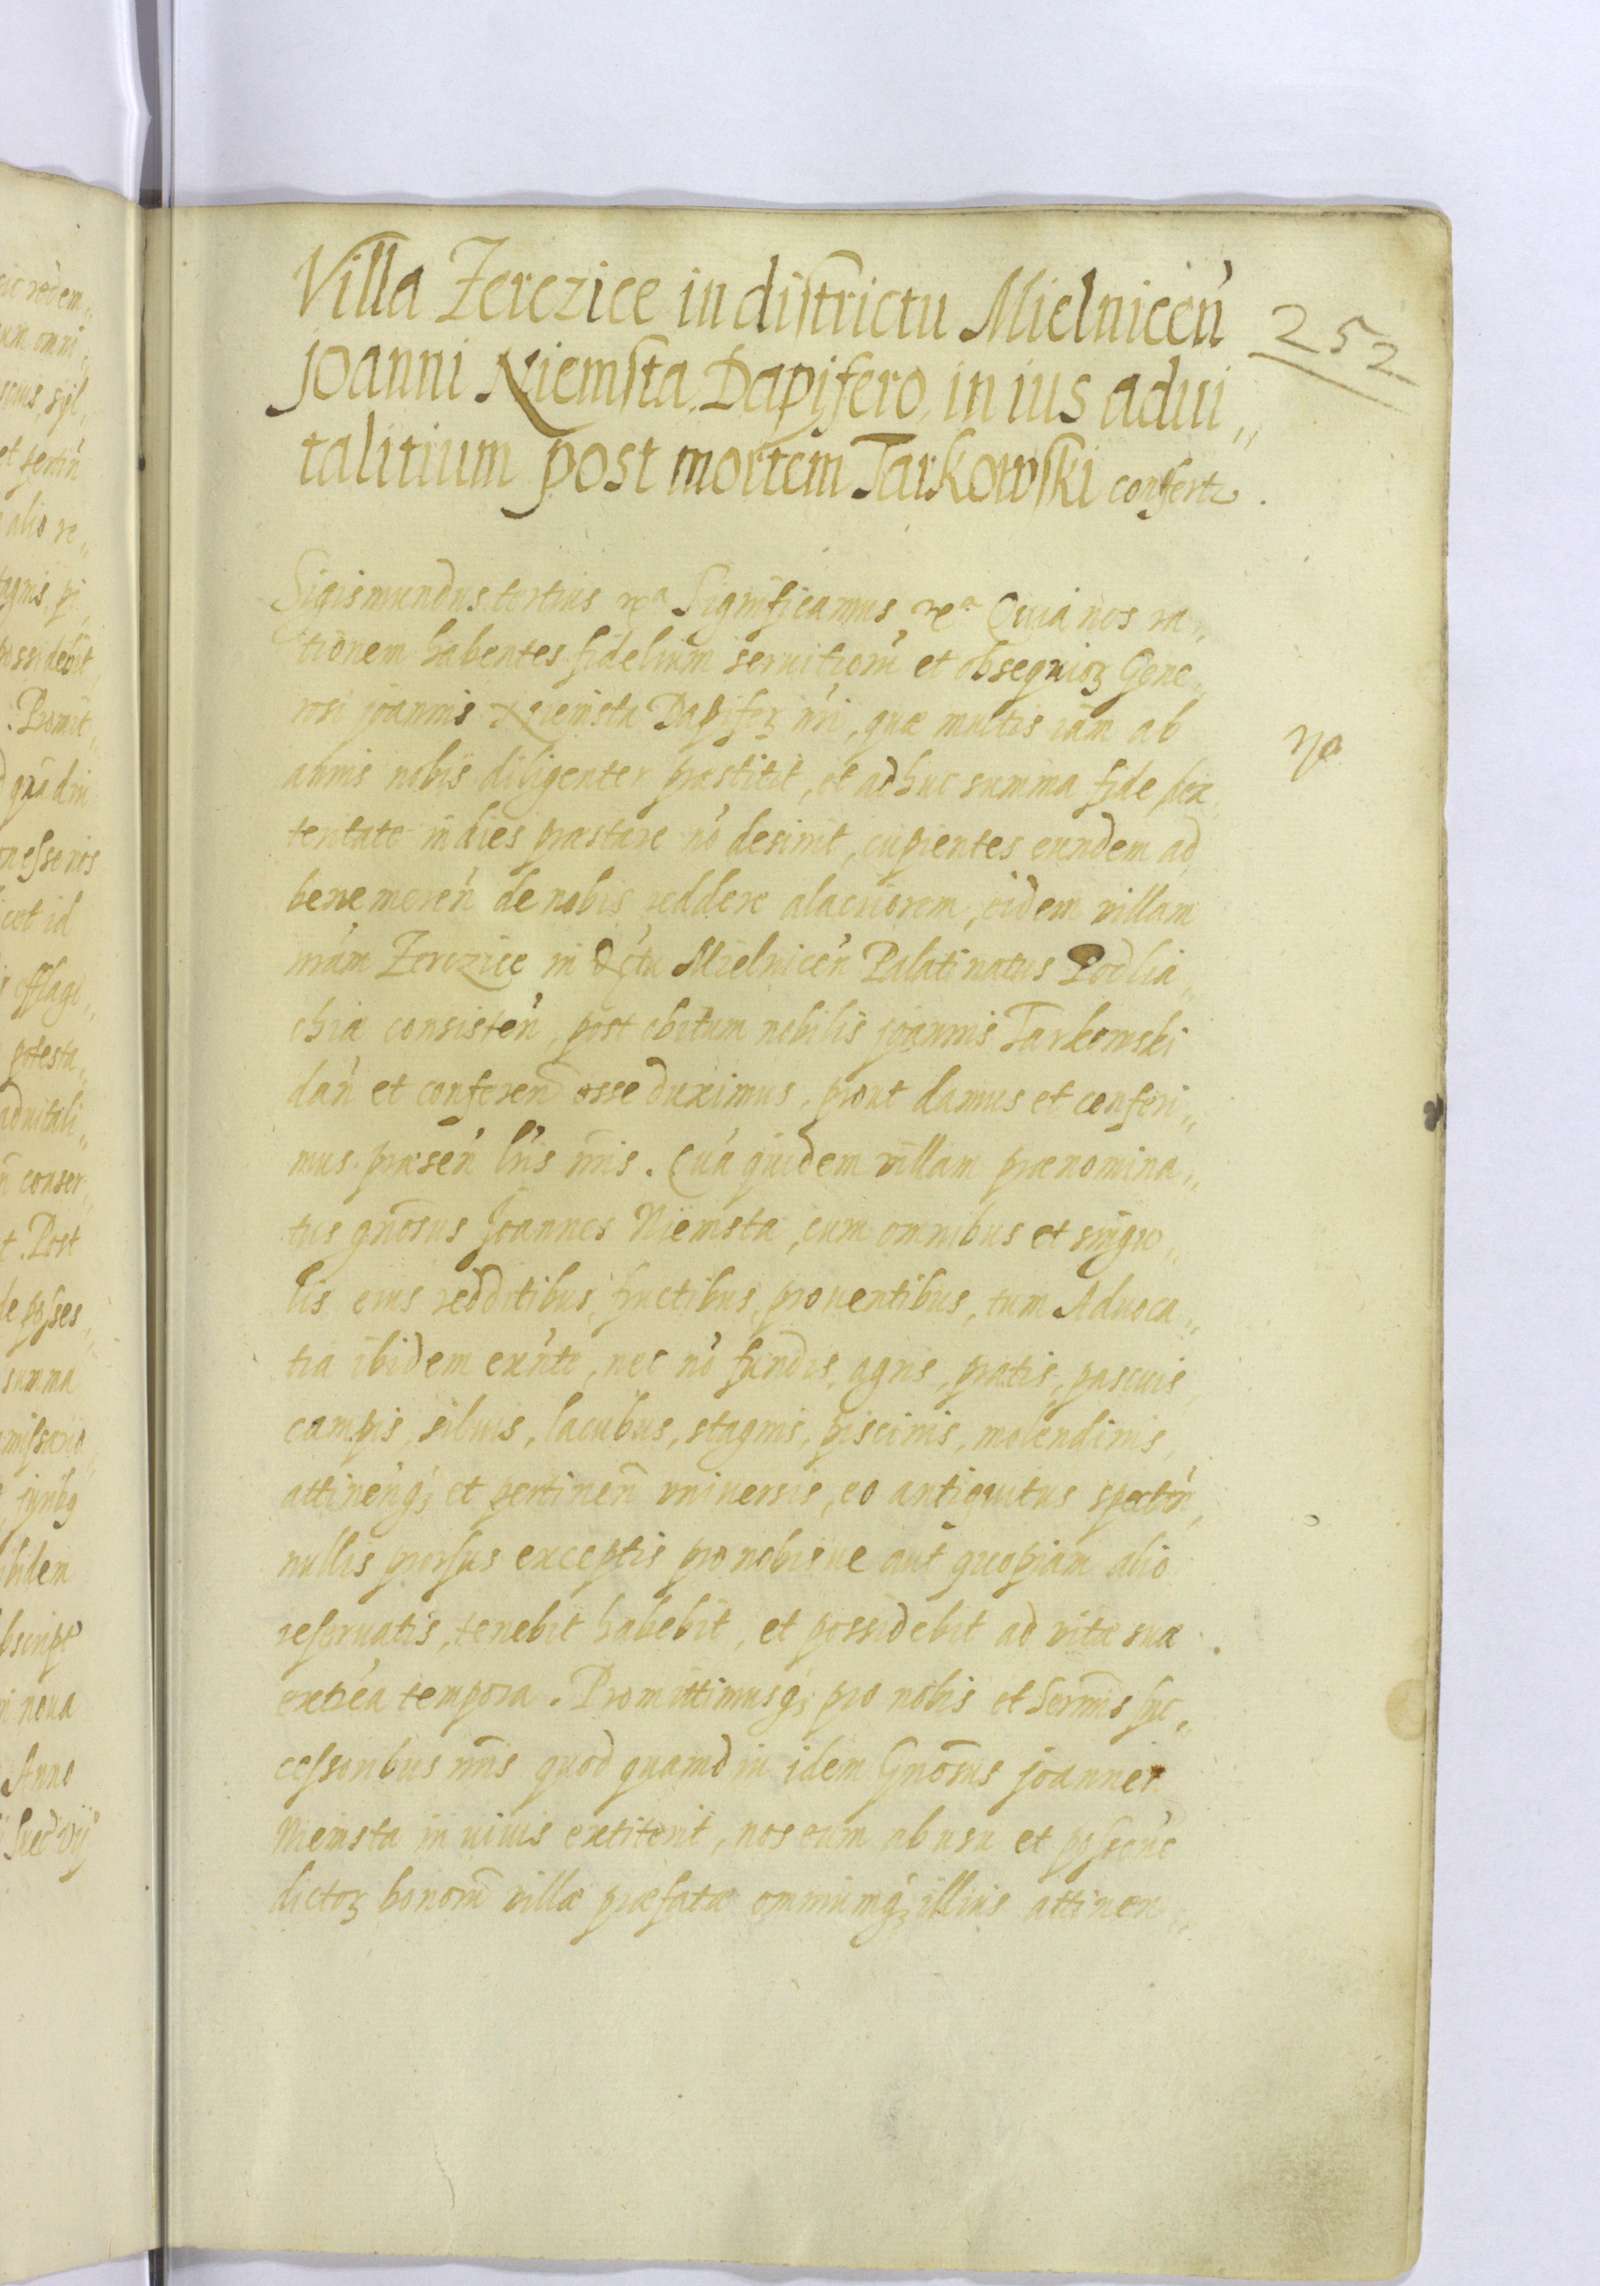 Villa Zerczice in districtu Mielniceń
252
Joanni Niemsta Dapifero in ius adui„
talitium post mortem Tarkowski confertr.
Sigismundus tertius rca Significamus rca Quia nos ra„
tionem habentes fidelium seruitiorũ et obsequioꝝ Gene„
rosi joannis Niemsta Dapiferi nri, quæ multis iam ab
annis nobis diligenter præstitit, et adhuc summa fide dex
teritate in dies præstare nõ desinit, cupientes eundem ad
bene mereń de nobis reddere alacriorem, eidem villam
nrám Zerczice in Dctu Mielniceń Palatinatus Podlia„
chiæ consisteń, post obitum nobilis joannis Tarkowski
dań et conferen̄ esse duximus, prout damus et conferi„
mus præseń lris nris. Quá quidem villam prænomina„
tus gnosus Joannes Niemsta, cum omnibus et singu„
lis eius redditibus, fructibus, prouentibus, tum Aduoca„
tia ibidem exn̄te, nec nõ fundis, agris, pratis, pascuis
campis, siluis, lacubus, stagnis, piscinis, molendinis,
attineńq; et pertinen̄ vniuersis, eo antiquitus spectań,
nullis prorsus exceptis pro nobisue aut quopiam alio
reseruatis, tenebit habebit, et possidebit ad vitæ suæ
extréa tempora. Promittimusq; pro nobis et Sermis suc„
cessoribus nris quod quamdiu idem Gnosus joannes
Niemsta in uiuis extiterit, nos eum ab usu et possne
dictoꝝ bonorũ villæ præfatæ omniumq; illius attinen„